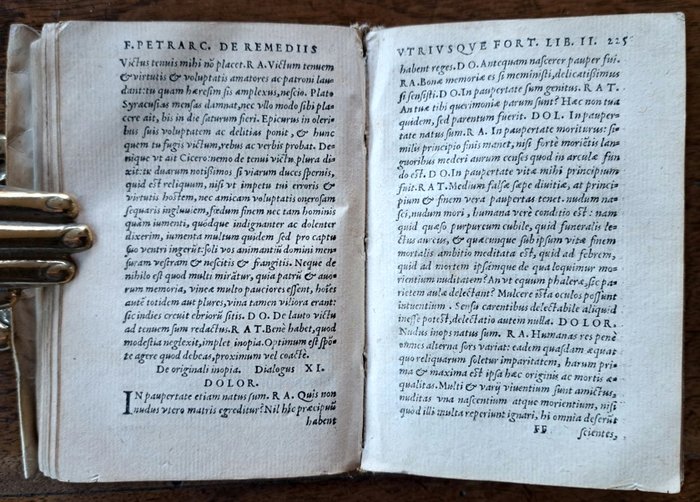 F. PETRARC. DE REMEDIIS
Victus tenuis mihi nõ placet. R A. Victum tenuem
& virtutis & voluptatis amatores ac patroni lau
dant: tu quam hæresim sis amplexus, nescio. Plato
Syracusias mensas damnat, nec vllo modo sibi pla
cere ait, bis in die saturum fieri. Epicurus in oleri
bus suis voluptatem ac delitias ponit, & hunc
quem tu fugis victum, rebus ac verbis probat. De
nique vt ait Cicero: nemo de tenui victu plura di
xit: tu duarum notissimos si viarum duces spernis,
quid est reliquum, nisi vt impetu tui erroris &
virtutis hostem, nec amicam voluptatis onerosam
sequaris ingluuiem, fœdum finem nec tam hominis
quàm iumenti, quódque indignanter ac dolenter
dixerim, iumenta multum quidem sed pro captu
suo ventri ingerūt: soli vos animantiũ domini men
suram vestram & nescitis & frangitis. Neque de
nihilo est quod multi mirãtur, quia patrũ & auo
rum memoria, vineæ multo pauciores essent, hoïes
autẽ totidem aut plures, vina tamen viliora erant:
sic indies creuit ebriorũ sitis. D O. De lauto victu
ad tenuem sum redactus. R A T. Benè habet, quod
modestia neglexit, implet inopia. Optimum est spõ
te agere quod debeas, proximum vel coactè.
De originali inopia. Dialogus XI.
DOLOR.
IN paupertate etiam natus sum. R A. Quis non
nudus vtero matris egreditur? Nil hîc præcipuũ
habent
VTRIVSQVE FORT. LIB. II. 225
habent reges. D O. Antequam nascerer pauper fui.
R A. Bonæ memoriæ es si meministi, delicatissimus
si sensisti. D O. In paupertate sum genitus. R A T.
An tuæ tibi querimoniæ parum sunt? Hæc non tua
quidem, sed parentum fuerit. D O L. In pauper
tate natus sum. R A. In paupertate moriturus: si=
milis principio finis manet, nisi fortè moriẽtis lan
guoribus mederi aurum censes quod in arculæ fun
do est. D O. In paupertate vitæ mihi principium
fuit. R A T. Medium falsæ sæpe diuitiæ, at princip
ium & finem vera paupertas tenet. nudum nas=
ci, nudum mori, humana verè conditio est: nam
quid quæso purpureum cubile, quid funeralis le=
ctus aureus, & quæcunque sub ipsum vitæ finem
mortalis ambitio meditata est, quid ad febrem,
quid ad mortem ipsamque de qua loquimur mo=
rientium nuditatem? An vt equum phaleræ, sic pa=
rietem aulæa delectant? Mulcere ista oculos possunt
intuentium. Sensu carentibus delectabile aliquid
inesse potest, delectatio autem nulla. DOLOR.
Nudus inops natus sum. R A. Humanas res penè
omnes alterna sors variat: eadem quasdam æquat
quo reliquarum soletur imparitatem, harum pri=
ma & maxima est ipsa hæc originis ac mortis æ=
qualitas. Multi & varij viuentium sunt amictus,
nuditas vna nascentium atque morientium, nisi
quod illi multa reperiunt ignari, hi omnia deserũt
scientes,